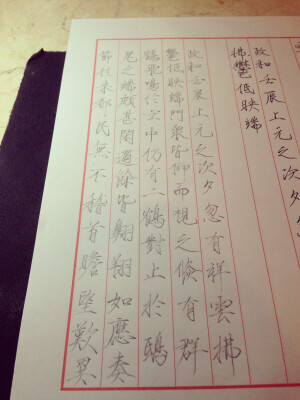 政和壬辰上元
拂鬱低映端
政和壬辰上元之次夕忽有祥雲拂
鬱低映端門衆皆仰而視之倏有群
鶴飛鳴於空中仍有二鶴對止於鴟
尾之端頗甚閑適餘皆翱翔如應奏
節往來都民無不稽首瞻望歎異